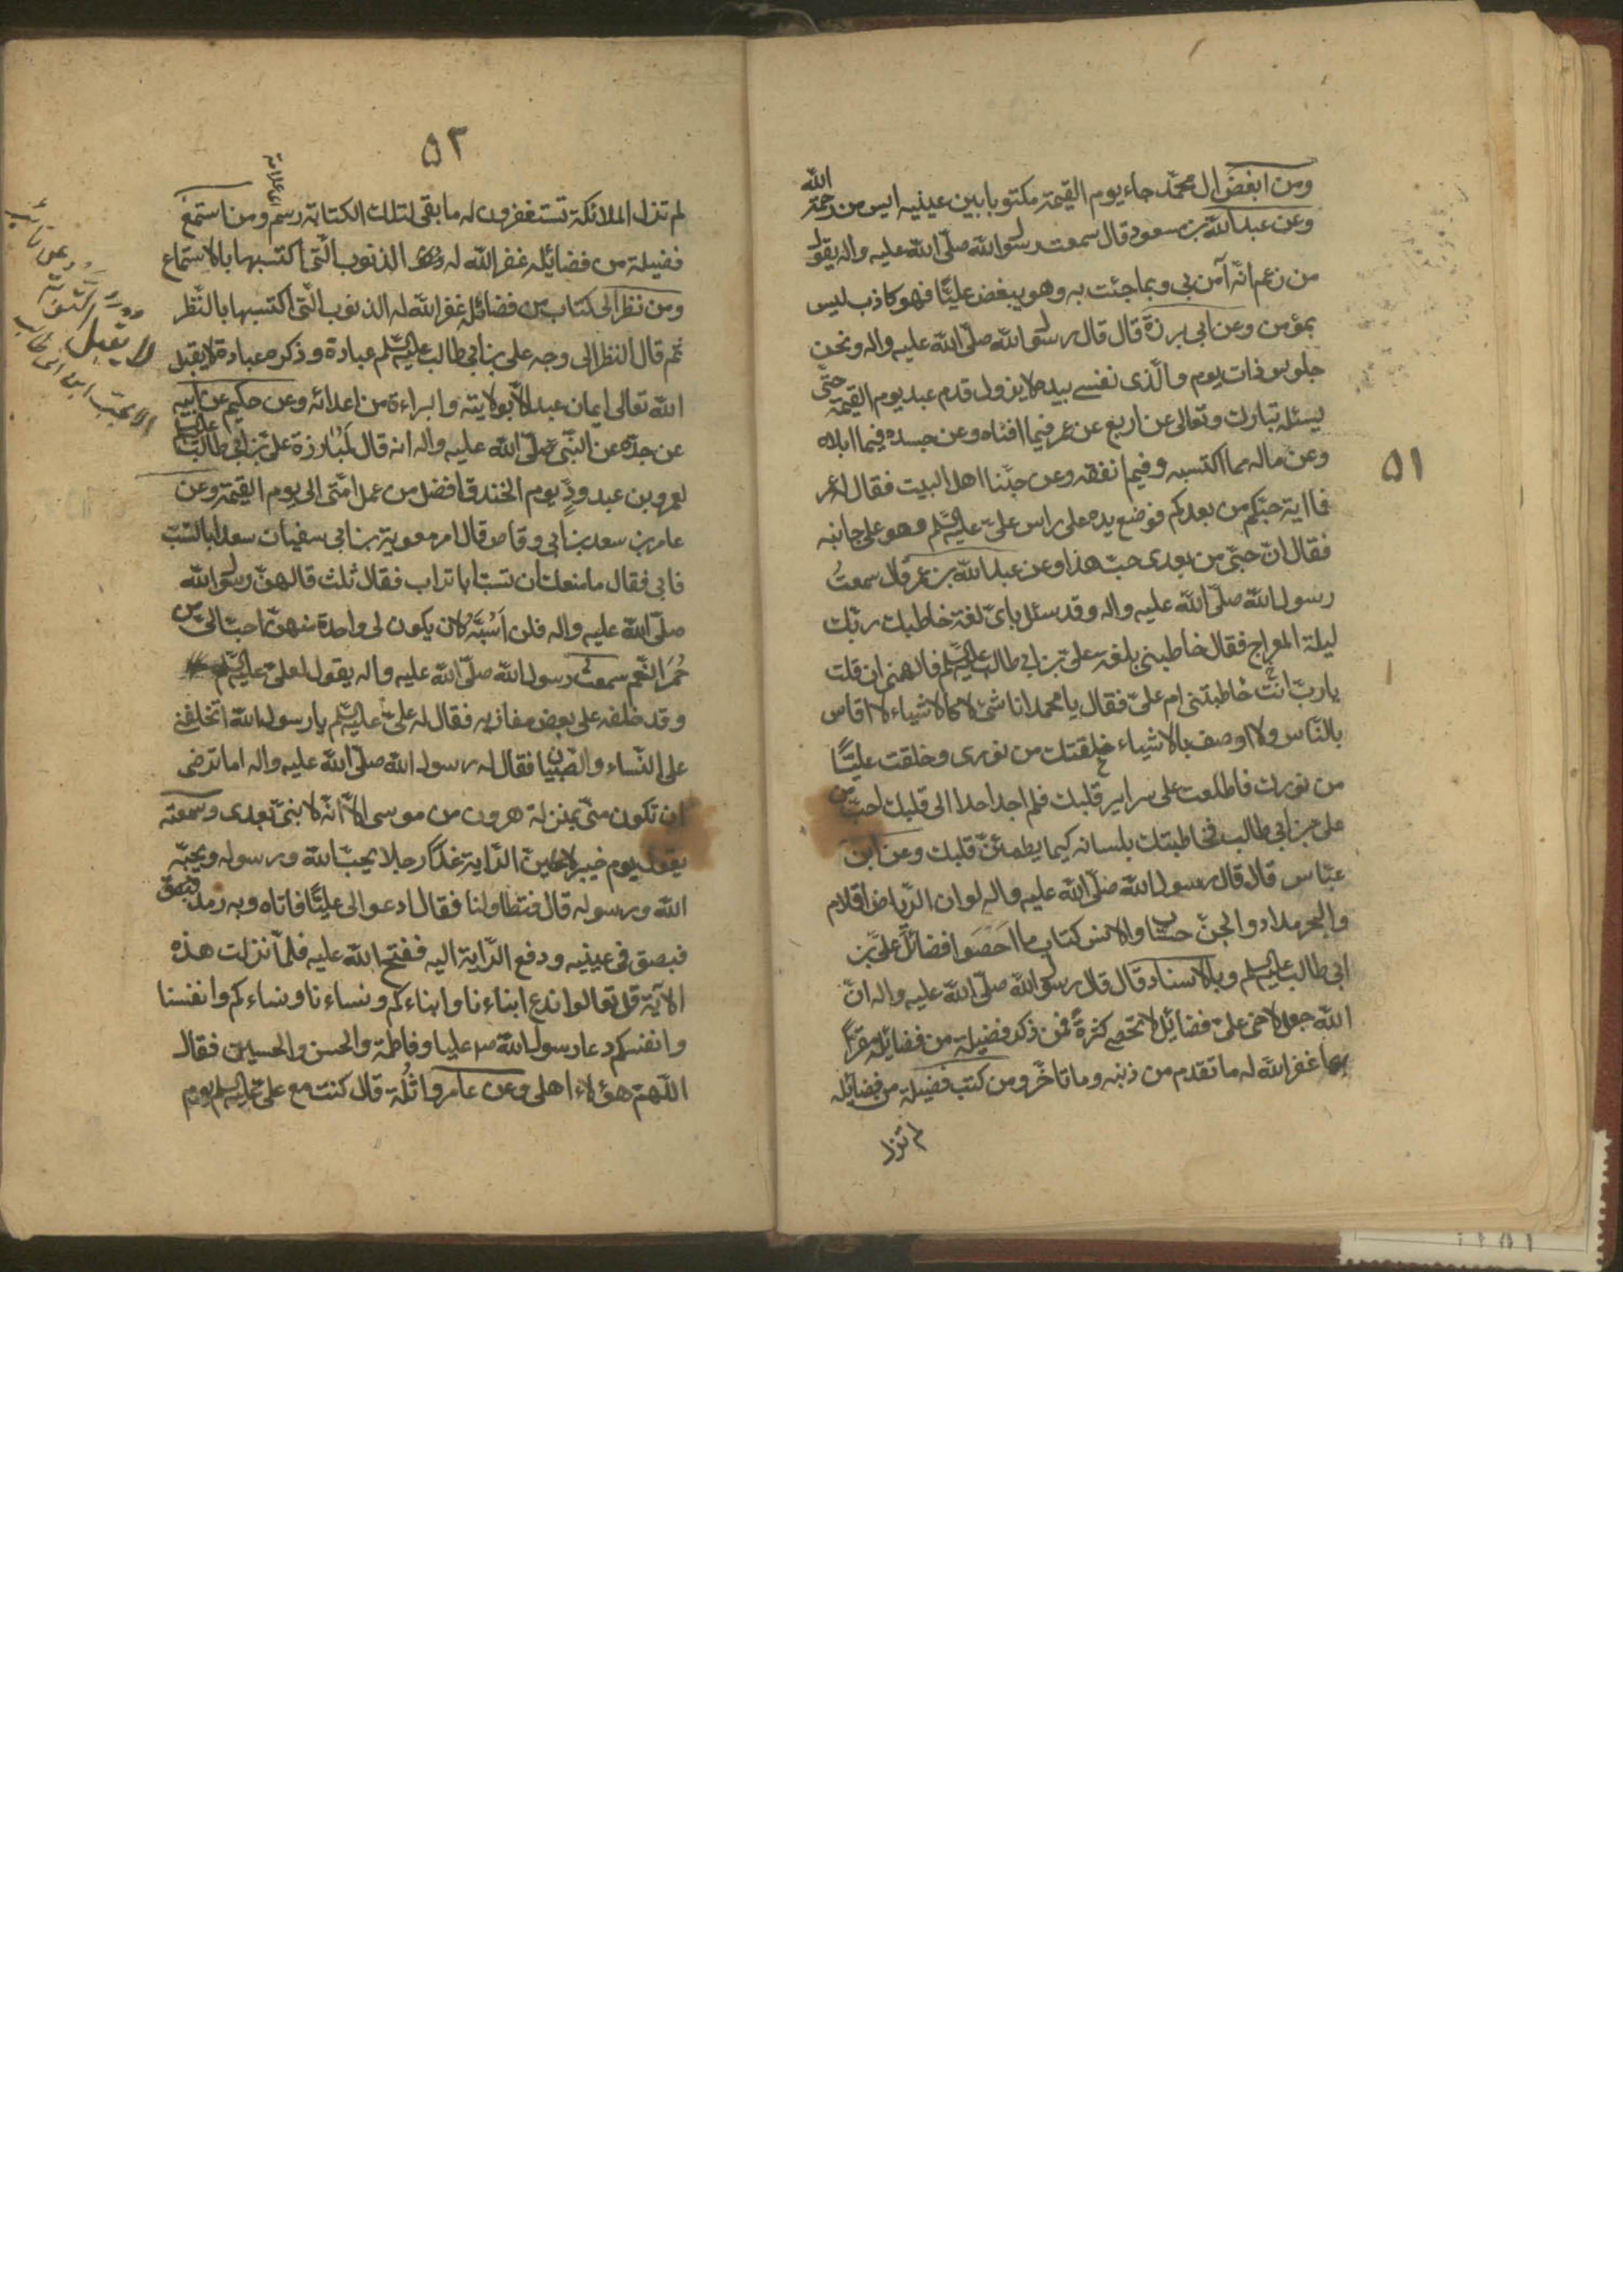 ٥١
ومن ابغض ال محمّد جاء يوم القيمة مكتوبا بين عينيه ايس من رحمة الله
وعن عبد الله بن مسعود قال سمعت رسول الله صلّى الله عليه واله يقول
من زعم انّه آمن بي وبما جئت به وهو يبغض عليًّا فهو كاذب ليس
بمؤمن وعن ابي برزة قال قال رسول الله صلّى الله عليه واله ونحن
جلوس ذات يوم والّذى نفسي بيده لا يزول قدم عبد يوم القيمة حتّى
يسئله تبارك وتعالى عن اربع عن عمره فيما افناه وعن جسده فيما ابلاه
وعن ماله مما اكتسبه وفيم انفقه وعن حبّنا اهل البيت فقال له عمر
فما اية حبّكم من بعدكم فوضع يده على راس علىّ عليه السّلم وهو على جانبه
فقال انّ حبّى من بعدى حبّ هذا وعن عبد الله بن عمر قال سمعتُ
رسول الله صلّى الله عليه واله وقد سئل باىّ لغة خاطبك ربّك
ليلة المعراج فقال خاطبنى بلغة علىّ بن ابي طالب عليه السّلم فالهمنى ان قلت
يا ربّ انت خاطبتنى ام علىّ فقال يا محمد انا شئ لا كالاشياء لا اقاس
بالنّاس ولا اوصف بالاشياء خلقتك من نورى وخلقت عليًّا
من نورك فاطلعت على سراير قلبك فلم اجد احدا الى قلبك احبّ من
علىّ بن ابي طالب فخاطبتك بلسانه كيما يطمائنّ قلبك وعن ابن
عبّاس قال قال رسول الله صلّى الله عليه واله لو ان الرّياض اقلام
والبحر مداد والجنّ حسّاب والانس كتاب ما احصوا فضائل علىّ بن
ابي طالب عليه السلم وبالاسناد قال قال رسول الله صلّى الله عليه واله انّ
الله جعل لاخى علىّ فضائل لا تحصى كثرةً فمن ذكر فضيلة من فضايله مقرًّا
بها غفر الله له ما تقدم من ذنبه وما تاخّر ومن كتب فضيلة من فضايله
لم تزل
٥٢
لم تزل الملائكة تستغفرون له ما بقى لتلك الكتابة رسم ومن استمع
فضيلة من فضايله غفر الله له الذنوب الّتى اكتسبها بالاستماع
ومن نظر الى كتاب من فضائله غفر الله له الذنوب الّتى اكتسبها بالنّظر
ثم قال النظر الى وجه على بن ابي طالب عليه السّلم عبادة وذكره عبادة لا يقبل
الله تعالى ايمان عبد الّا بولايته والبراءة من اعدائه وعن حكيم عن ابيه
عن جدّه عن النبّى صلّى الله عليه واله انه قال لمبارزة علىّ بن ابي طالب
لعمرو بن عبد ودٍّ يوم الخندق افضل من عمل امّتى الى يوم القيمة وعن
عامر بن سعد بن ابي وقاص قال امر معوية بن ابي سفيان سعدا بالسّبّ
فابى فقال ما منعك ان تسبّ ابا تراب فقال ثلث قالهنّ رسول الله
صلّى الله عليه واله فلن اسبّه لان يكون لى واحدة منهنّ احبّ الىّ من
حُمر النّعم سمعت رسول الله صلّى الله عليه واله يقول لعلىّ عليه السّلم
وقد خلفه على بعض مغازيه فقال له علىّ عليه السّلم يا رسول الله اتخلفنى
على النّساء والصّبيان فقال له رسول الله صلّى الله عليه واله اما ترضى
ان تكون منّى بمنزلة هرون من موسى الّا انّه لا نبىّ بعدى وسمعته
يقول يوم خيبر لاعطينّ الرّاية غدًا رجلا يحبّ الله ورسوله ويحبّه
الله ورسوله قال فتطاولنا فقال ادعوا لى عليًّا فاتاه وبه رمد
فبصق فى عينيه ودفع الرّاية اليه ففتح الله عليه فلمّا نزلت هذه
الآية قل تعالوا ندع ابناءنا وابناءكم ونساءنا ونساءكم وانفسنا
وانفسكم دعا رسول الله عليا وفاطمة والحسن والحسين فقال
اللّهم هؤلاء اهلى وعن عامر واثلة قال كنت مع علىّ عليه السلم يوم
لا يقبل